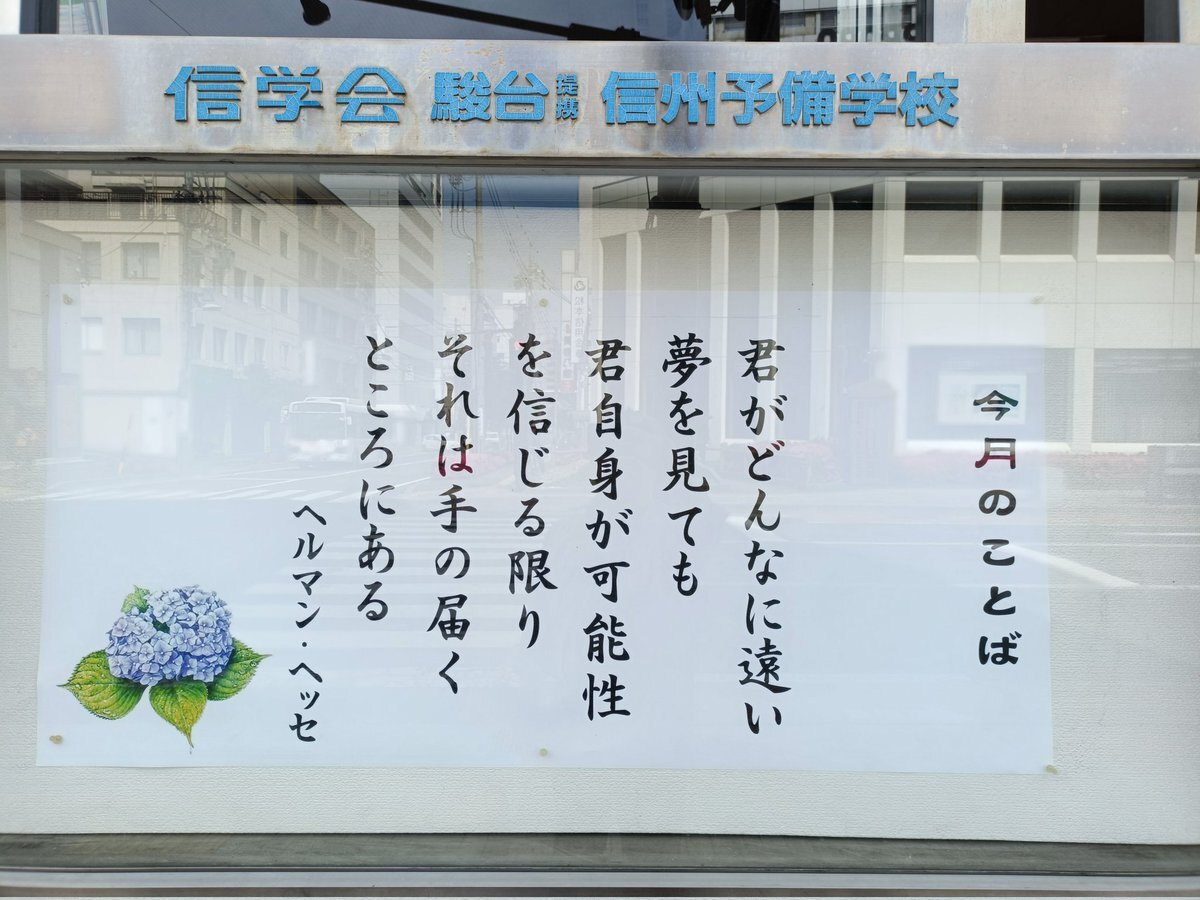 信学会 駿台提携 信州予備学校
今月のことば
君がどんなに遠い
夢を見ても
君自身が可能性
を信じる限り
それは手の届く
ところにある
ヘルマン・ヘッセ